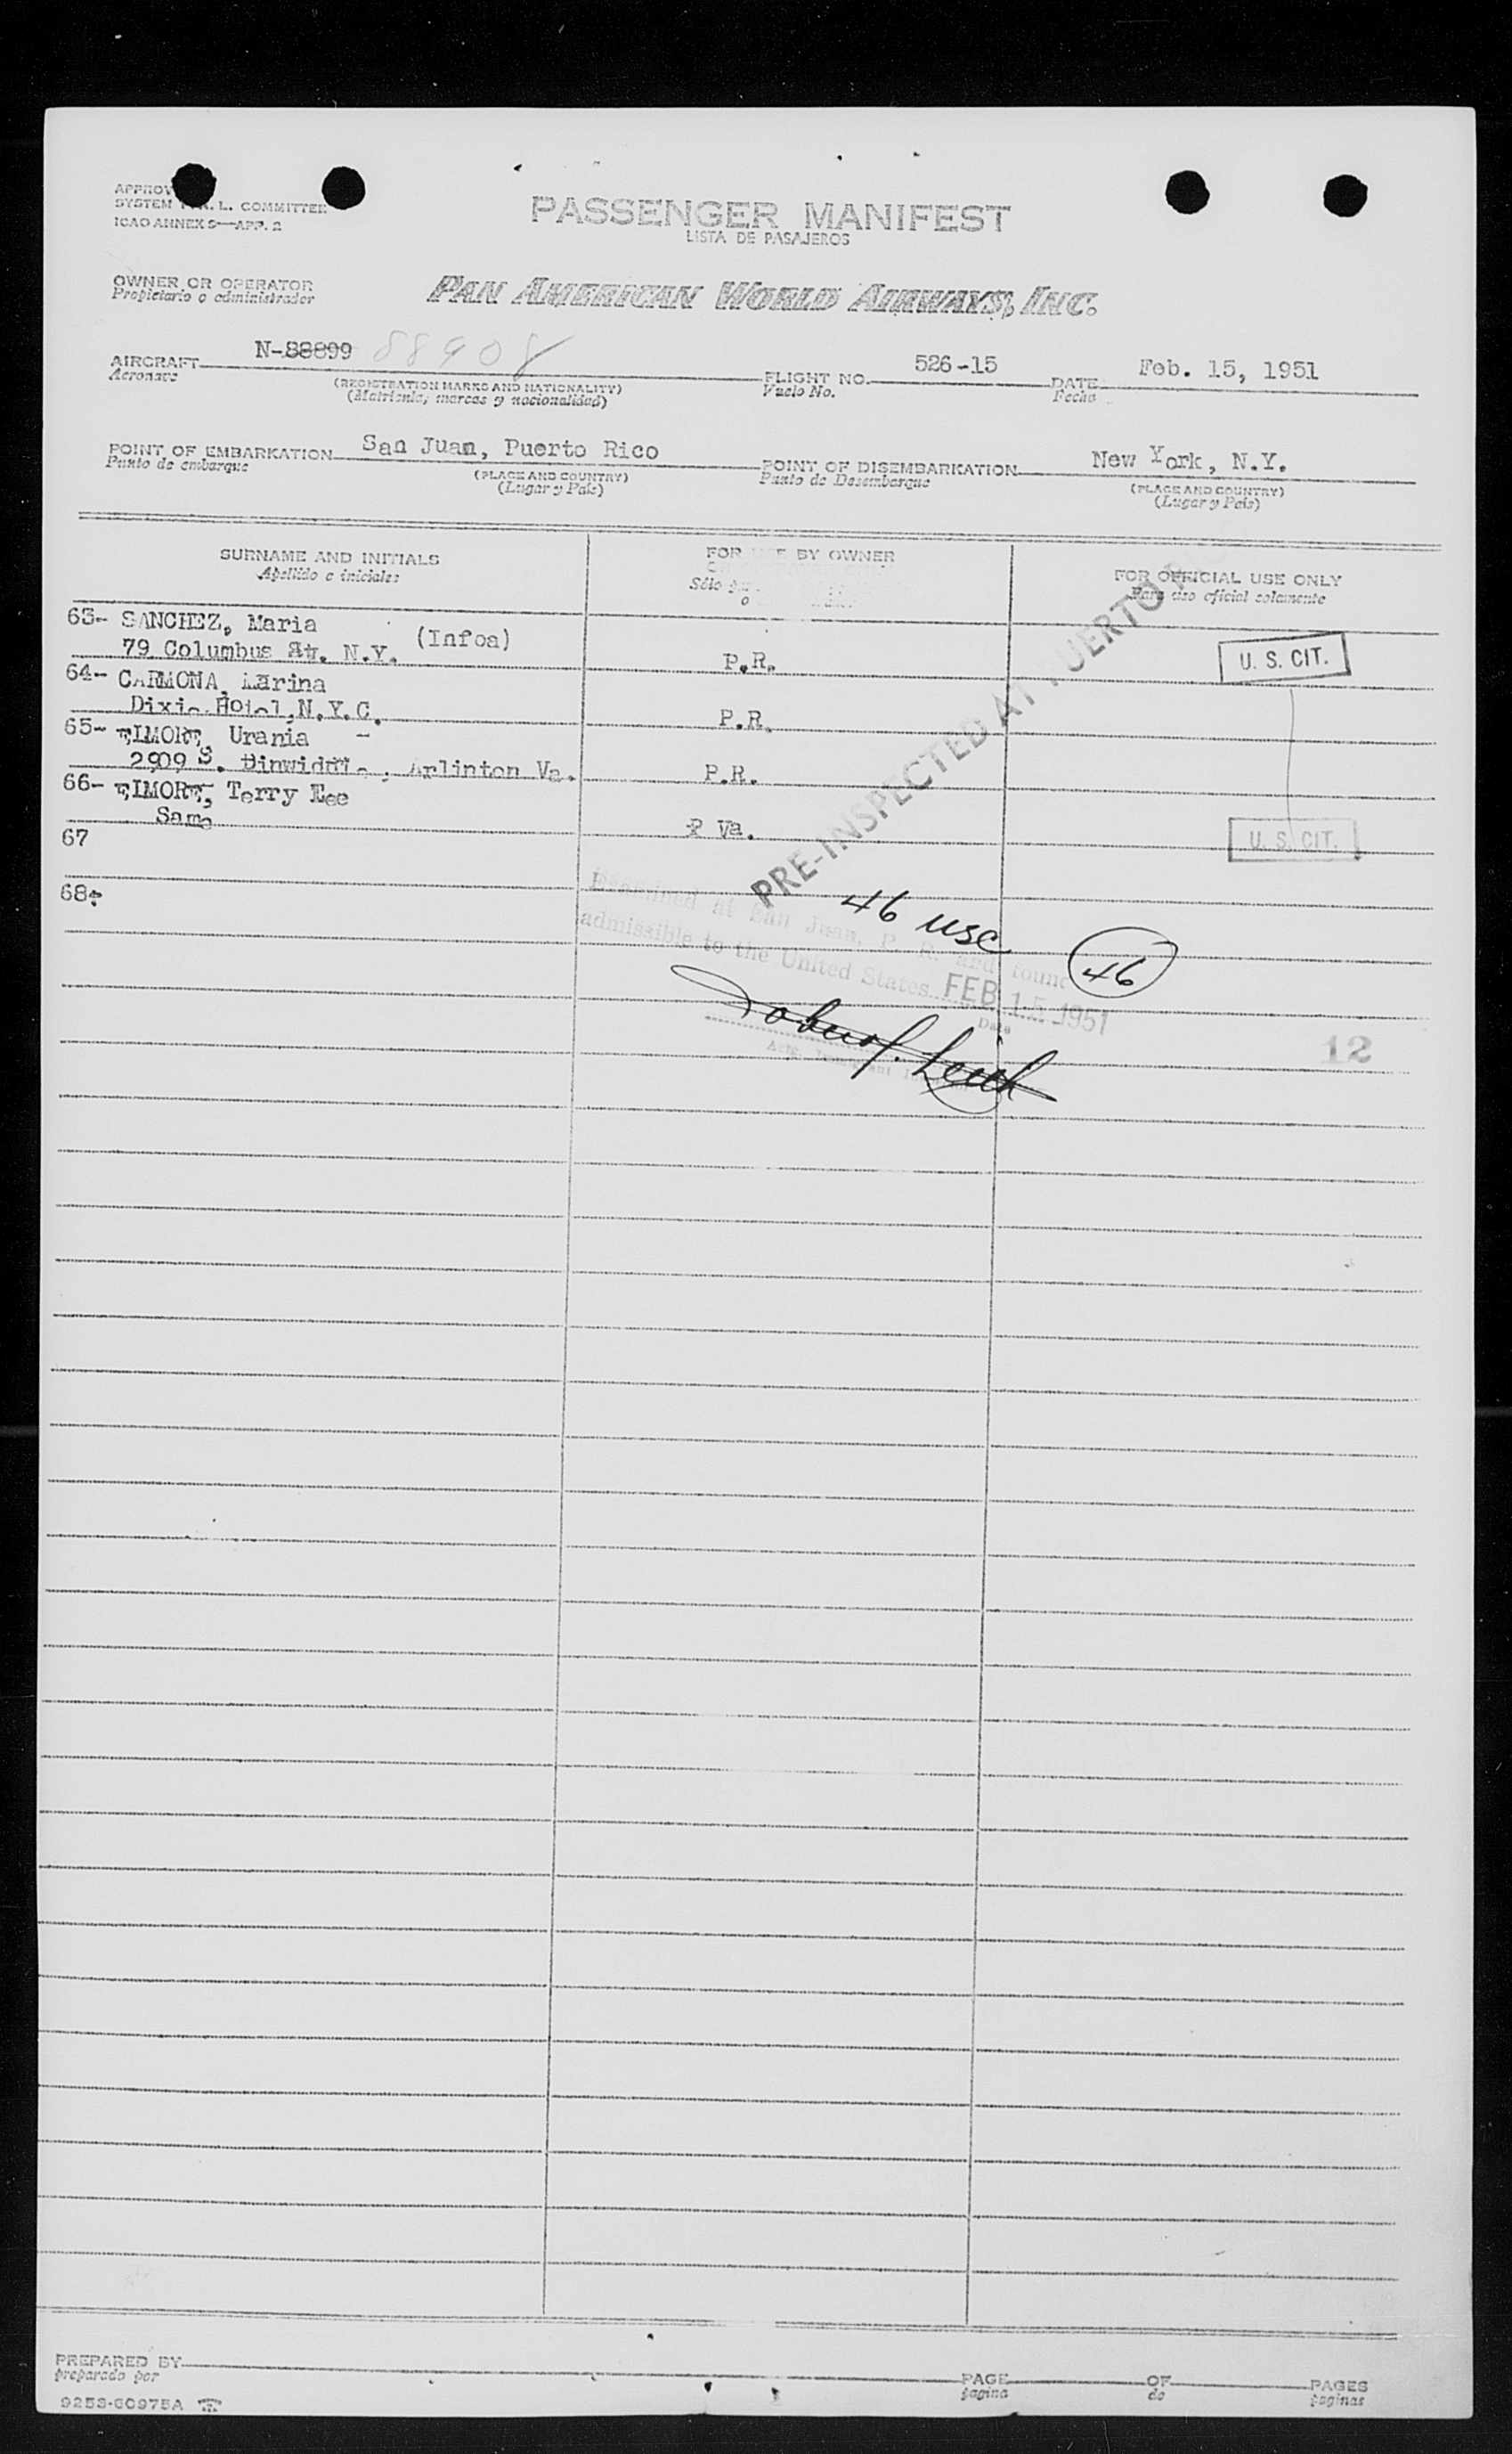 APPROV
SYSTEM L. COMMITTEE
ICAO ANNEX 9—APP. 2
PASSENGER MANIFEST
LISTA DE PASAJEROS
OWNER OR OPERATOR
Propietario o administrador
PAN AMERICAN WORLD AIRWAYS, INC.
AIRCRAFT N-88899 88908
Aeronave
(REGISTRATION MARKS AND NATIONALITY)
(Matricula, marcas y nacionalidad)
FLIGHT NO. 526-15
Vuelo No.
DATE Feb. 15, 1951
Fecha
POINT OF EMBARKATION San Juan, Puerto Rico
Punto de embarque
(PLACE AND COUNTRY)
(Lugar y País)
POINT OF DISEMBARKATION New York, N.Y.
Punto de Desembarque
(PLACE AND COUNTRY)
(Lugar y País)
SURNAME AND INITIALS
Apellido e iniciales
FOR USE BY OWNER
Sólo
o
FOR OFFICIAL USE ONLY
Para uso oficial solamente
63- SANCHEZ, Maria (Infoa)
79 Columbus N.Y. P.R. U. S. CIT.
64- CARMONA, Marina
Dixie Hotel, N.Y.C. P.R.
65- ELMORE, Urania -
2909 S. Dinwiddie, Arlinton Va. P.R.
66- ELMORE, Terry Lee
Same Va. U. S. CIT.
67
68
PRE-INSPECTED AT PUERTO R
Examined at San Juan, P. R. and found
admissible to the United States FEB 15 1951
Date
46 USC
46
12
PREPARED BY
preparado por
PAGE OF PAGES
pagina de paginas
9253-60975A